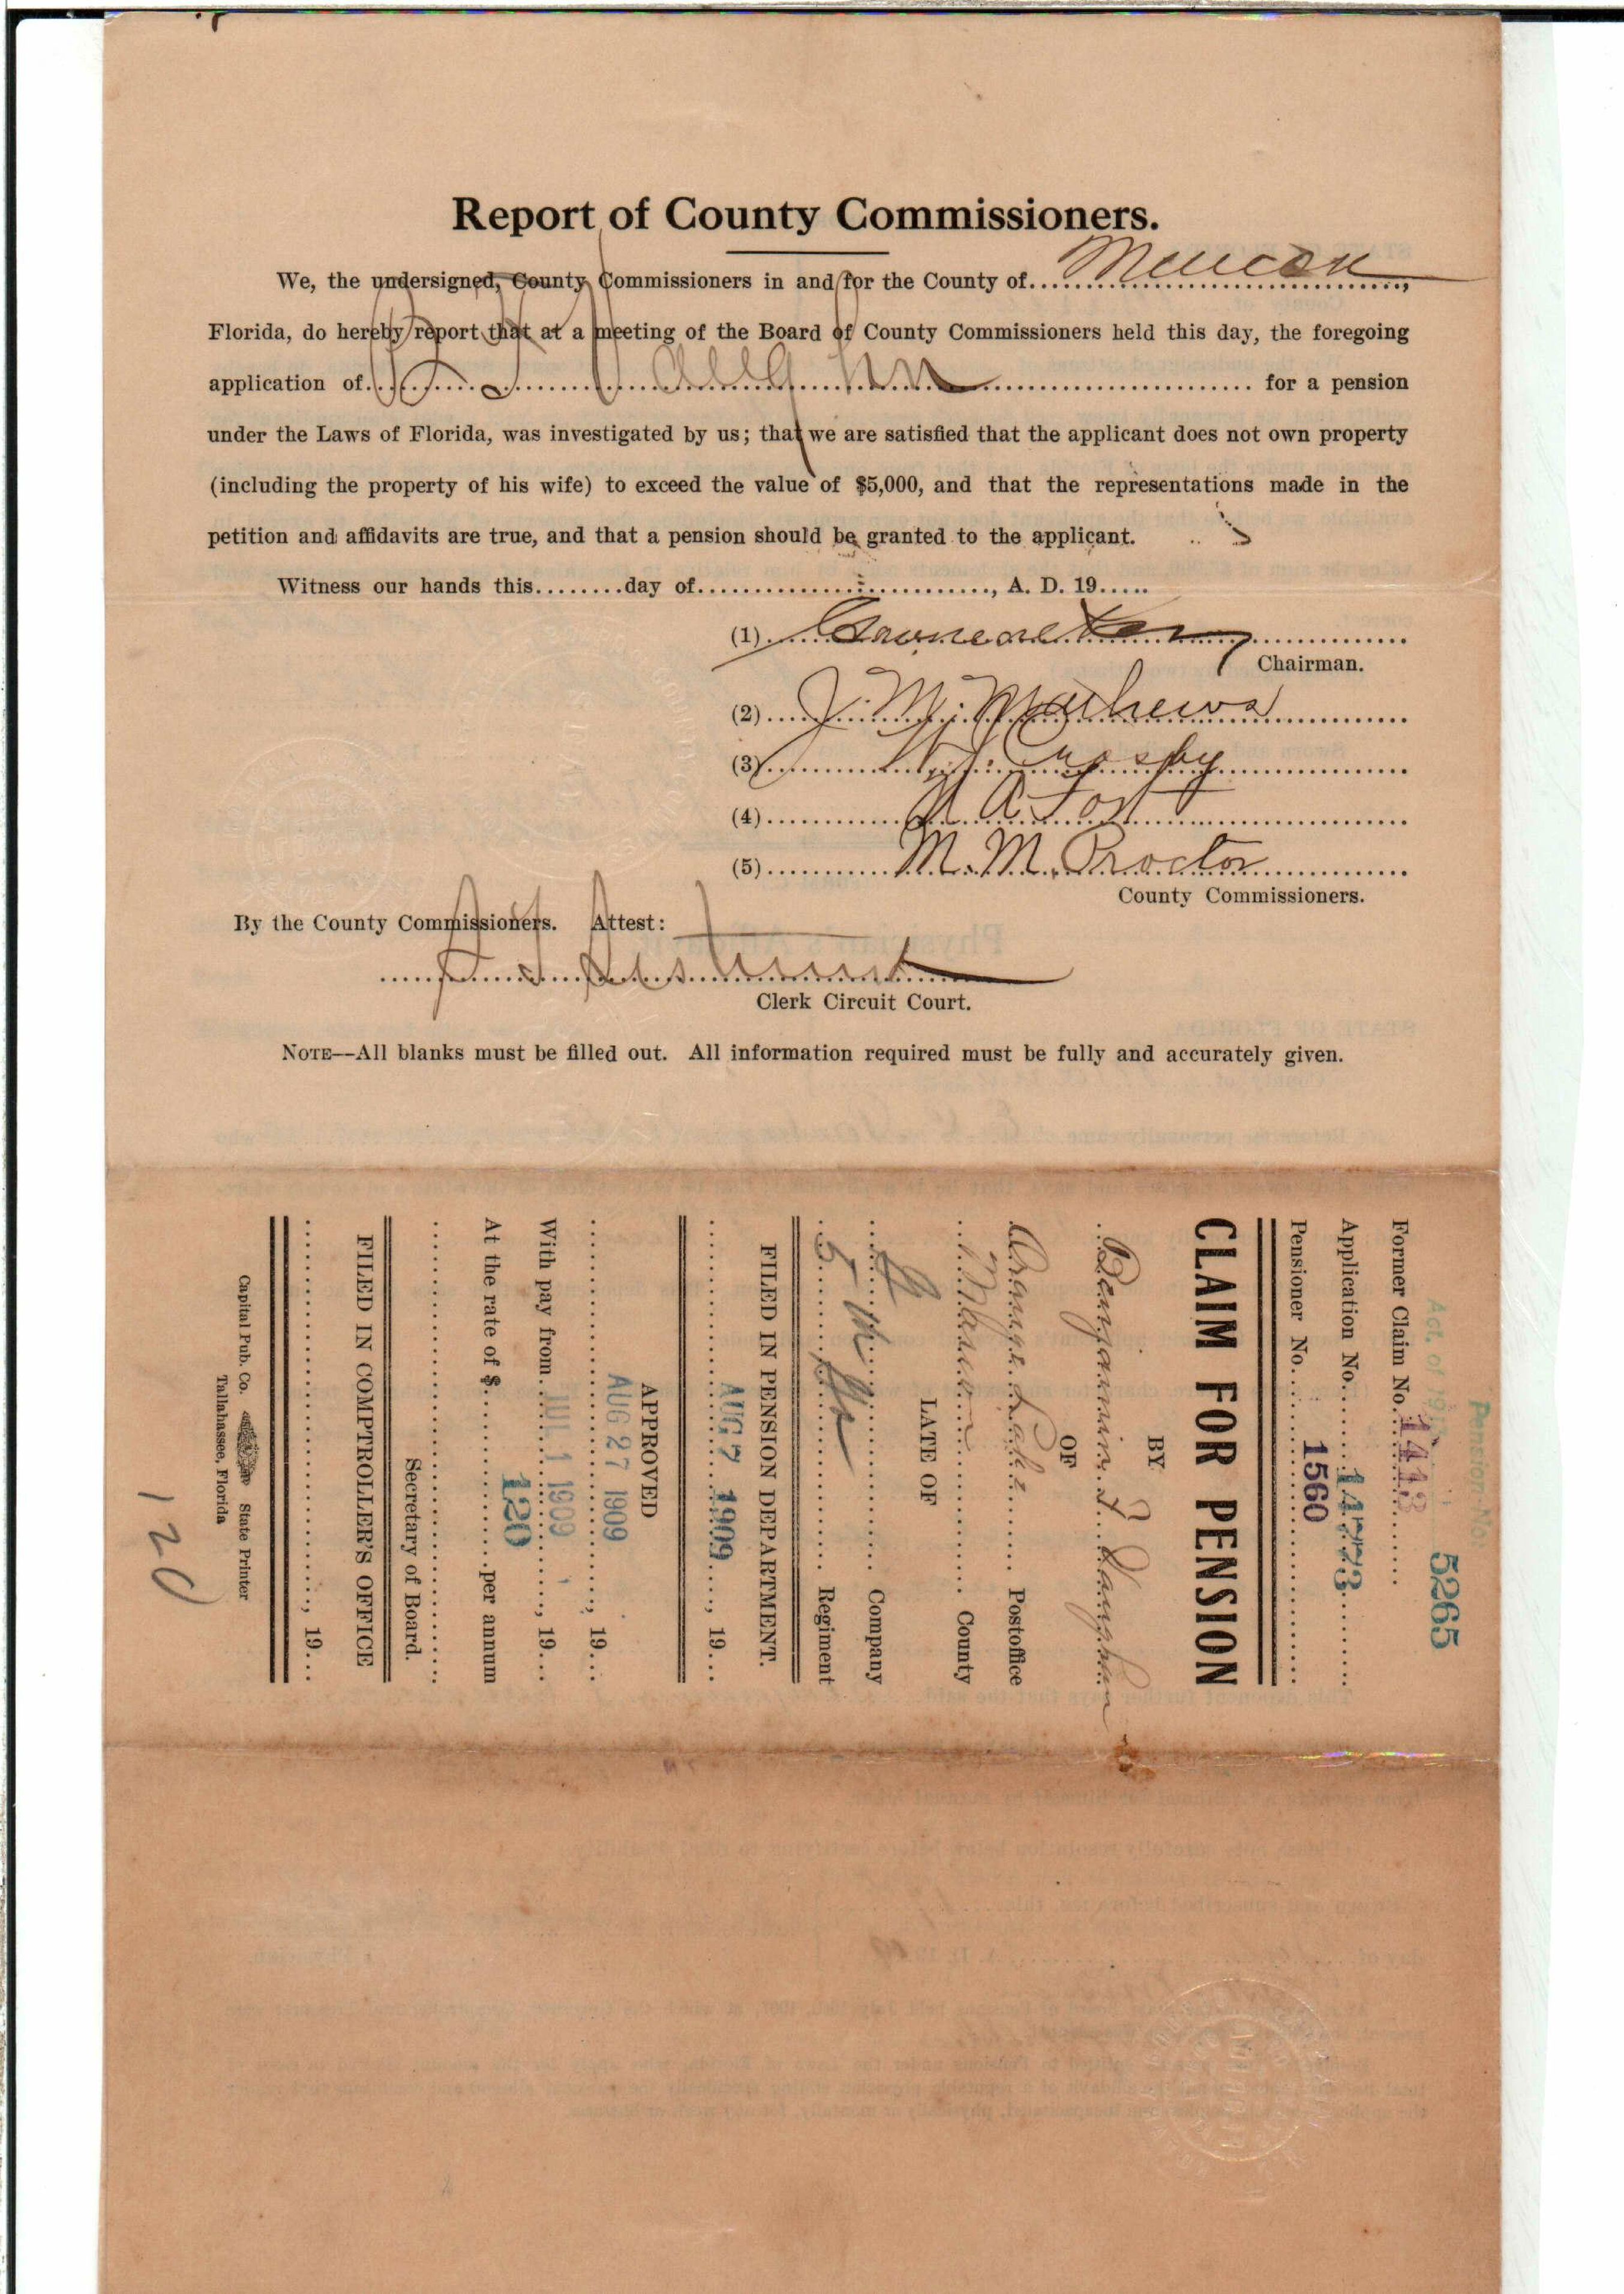 Report of County Commissioners.
We, the undersigned, County Commissioners in and for the County of Marion,
Florida, do hereby report that at a meeting of the Board of County Commissioners held this day, the foregoing
application of for a pension
under the Laws of Florida, was investigated by us; that we are satisfied that the applicant does not own property
(including the property of his wife) to exceed the value of $5,000, and that the representations made in the
petition and affidavits are true, and that a pension should be granted to the applicant.
Witness our hands this........day of..............................., A. D. 19.....
(1)
Chairman.
(2) J. M. Mathews
(3) Crosby
(4)
(5) M. M. Proctor
County Commissioners.
By the County Commissioners. Attest:
Clerk Circuit Court.
NOTE—All blanks must be filled out. All information required must be fully and accurately given.
Pension No.
5265
Act. of
Former Claim No. 1443
Application No. 14773
Pensioner No. 1560
CLAIM FOR PENSION
BY
Benjamin J Vaughn
OF
Orange Lake Postoffice
Marion County
LATE OF
Company
5th Regiment
FILED IN PENSION DEPARTMENT.
AUG 7 1909, 19...
APPROVED
AUG 27 1909, 19...
With pay from JUL 1 1909, 19...
At the rate of $ 120 per annum
Secretary of Board.
FILED IN COMPTROLLER'S OFFICE
, 19...
Capital Pub. Co. State Printer
Tallahassee, Florida
120